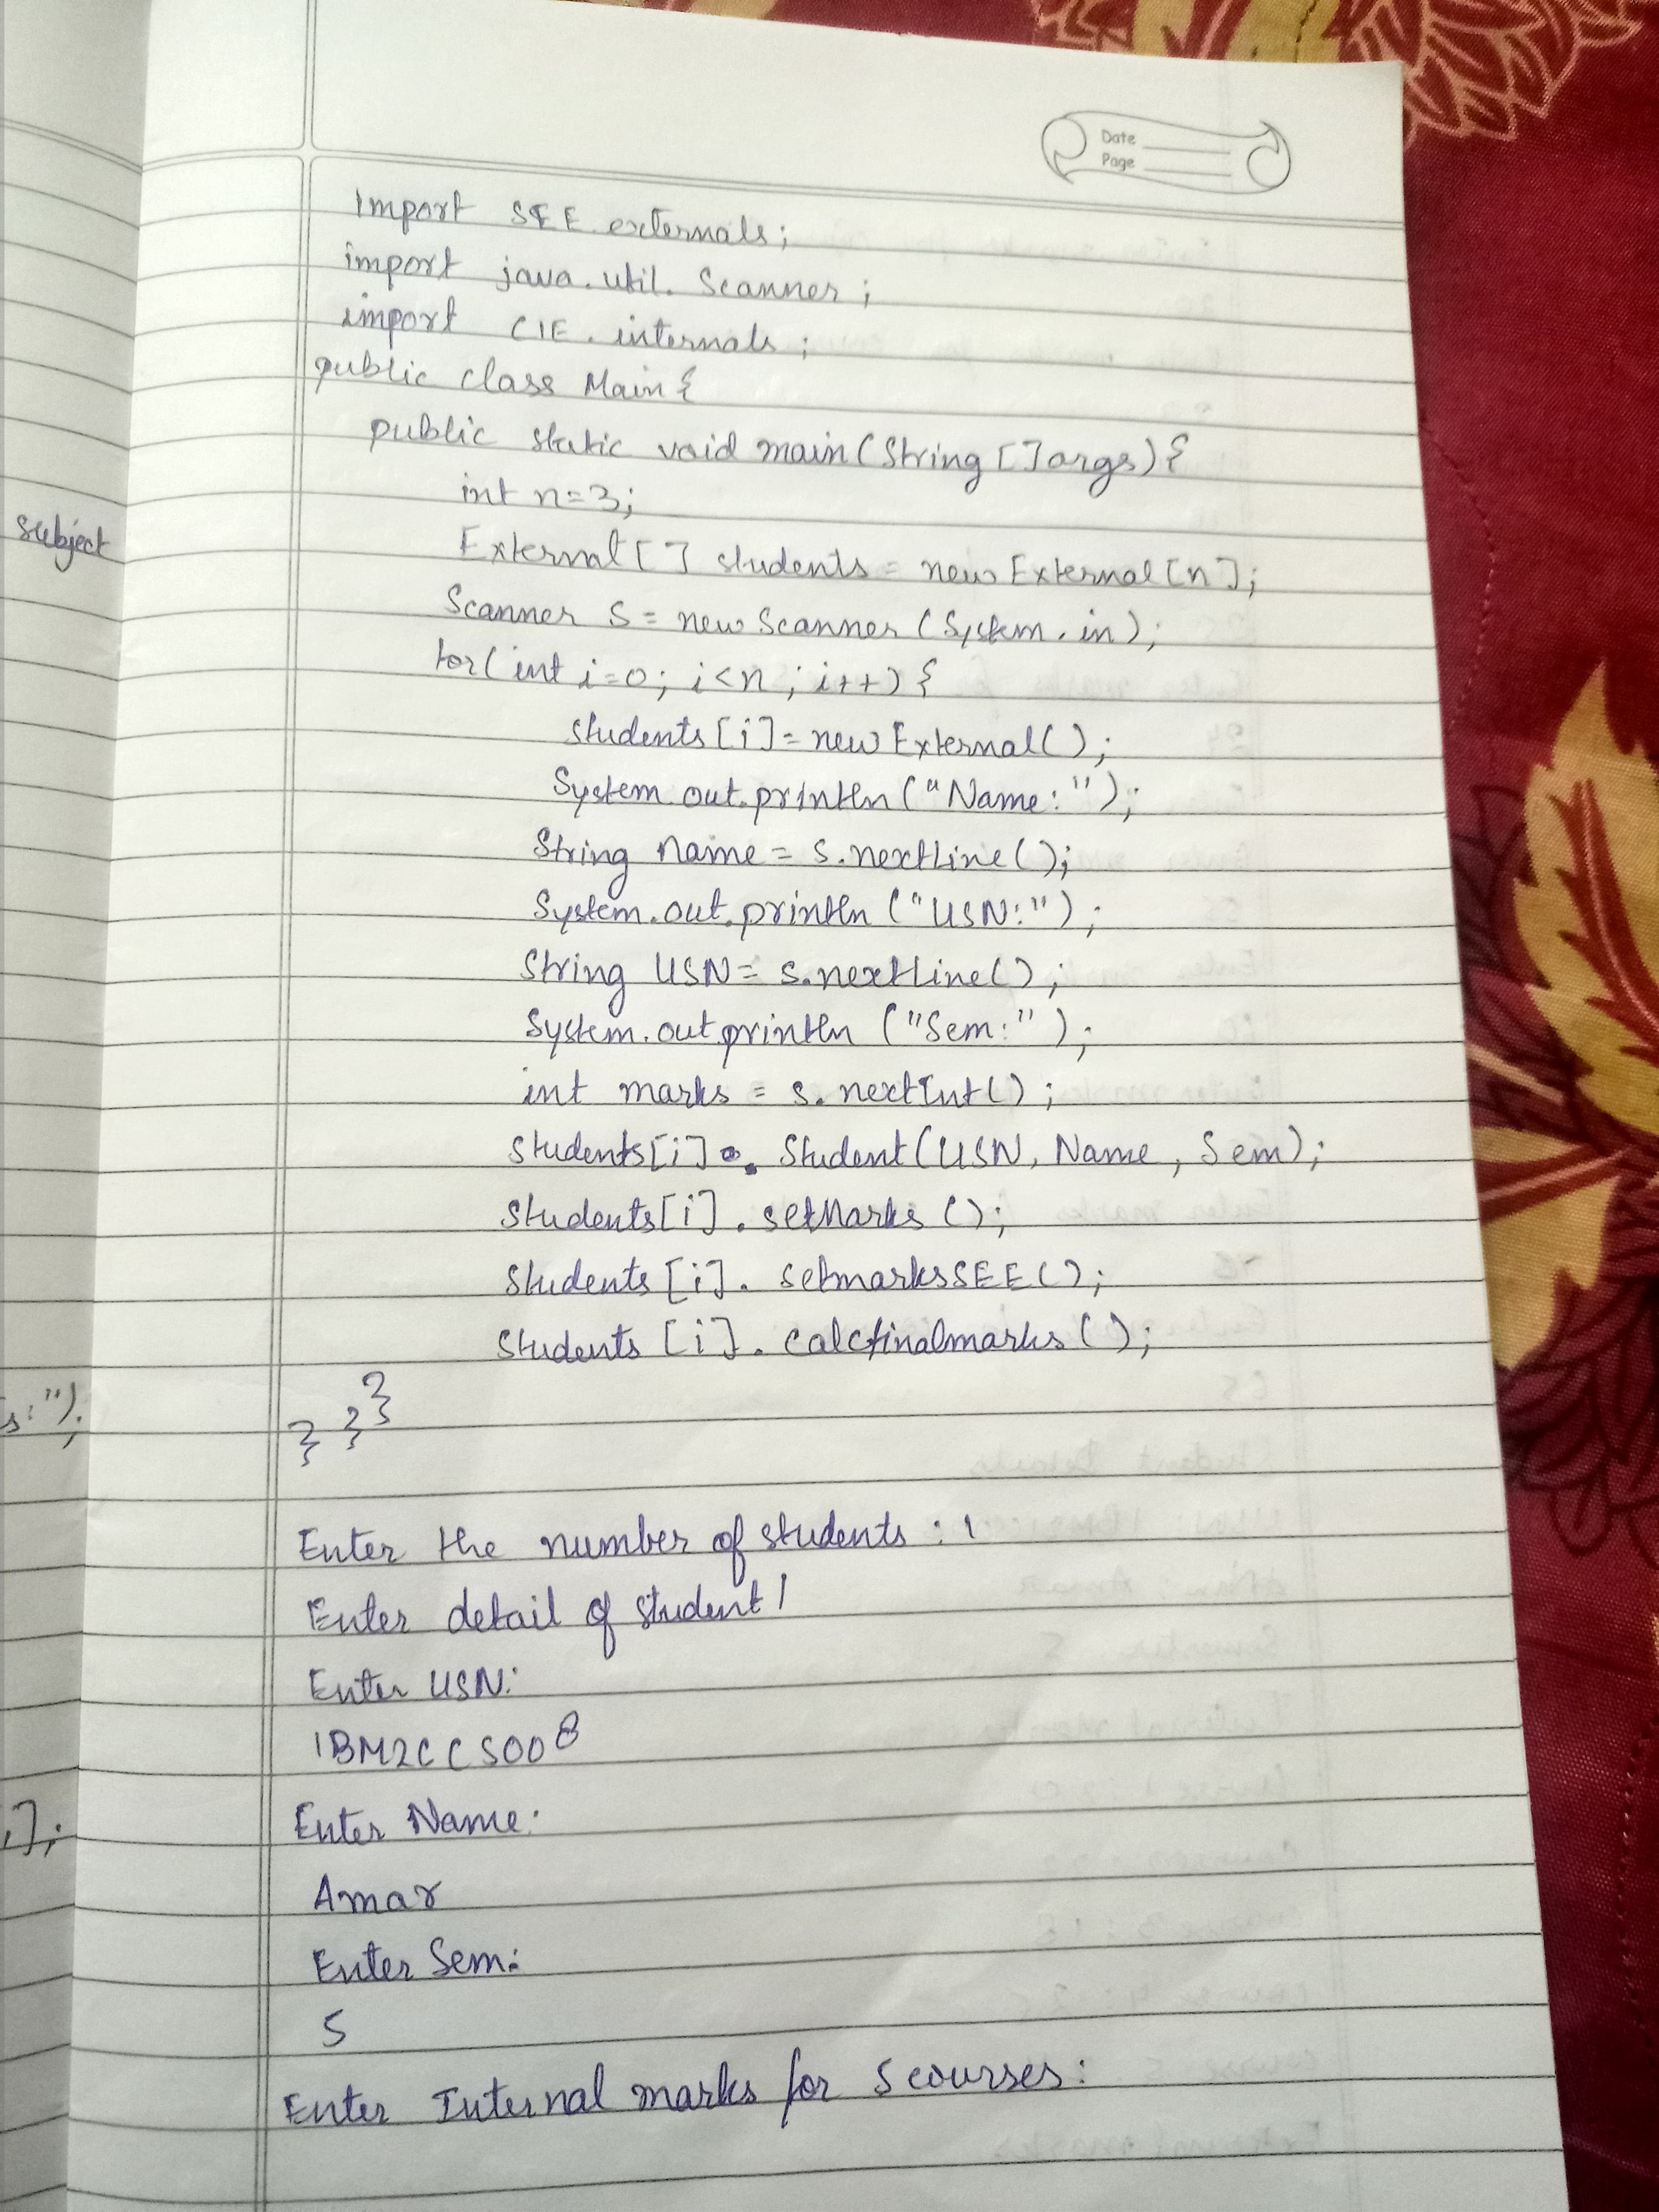 Date
Page
Import SEE.externals;
import java.util.Scanner;
import CIE.internals;
public class Main{
public static void main(String []args){
int n=3;
External[] students = new External[n];
Scanner S = new Scanner (System.in);
for(int i=0; i<n; i++){
students[i]=new External();
System.out.println("Name:");
String name = s.nextLine();
System.out.println("USN:");
String USN = s.nextLine();
System.out.println ("Sem:");
int marks = s.nextInt();
students[i]. Student(USN, Name, Sem);
students[i]. setMarks ();
students[i]. setmarksSEE();
students[i]. calcfinalmarks();
}
} }
Enter the number of students : 1
Enter detail of student 1
Enter USN:
1BM2CCS008
Enter Name:
Amar
Enter Sem:
5
Enter Internal marks for 5 courses:
subject
s:");
];